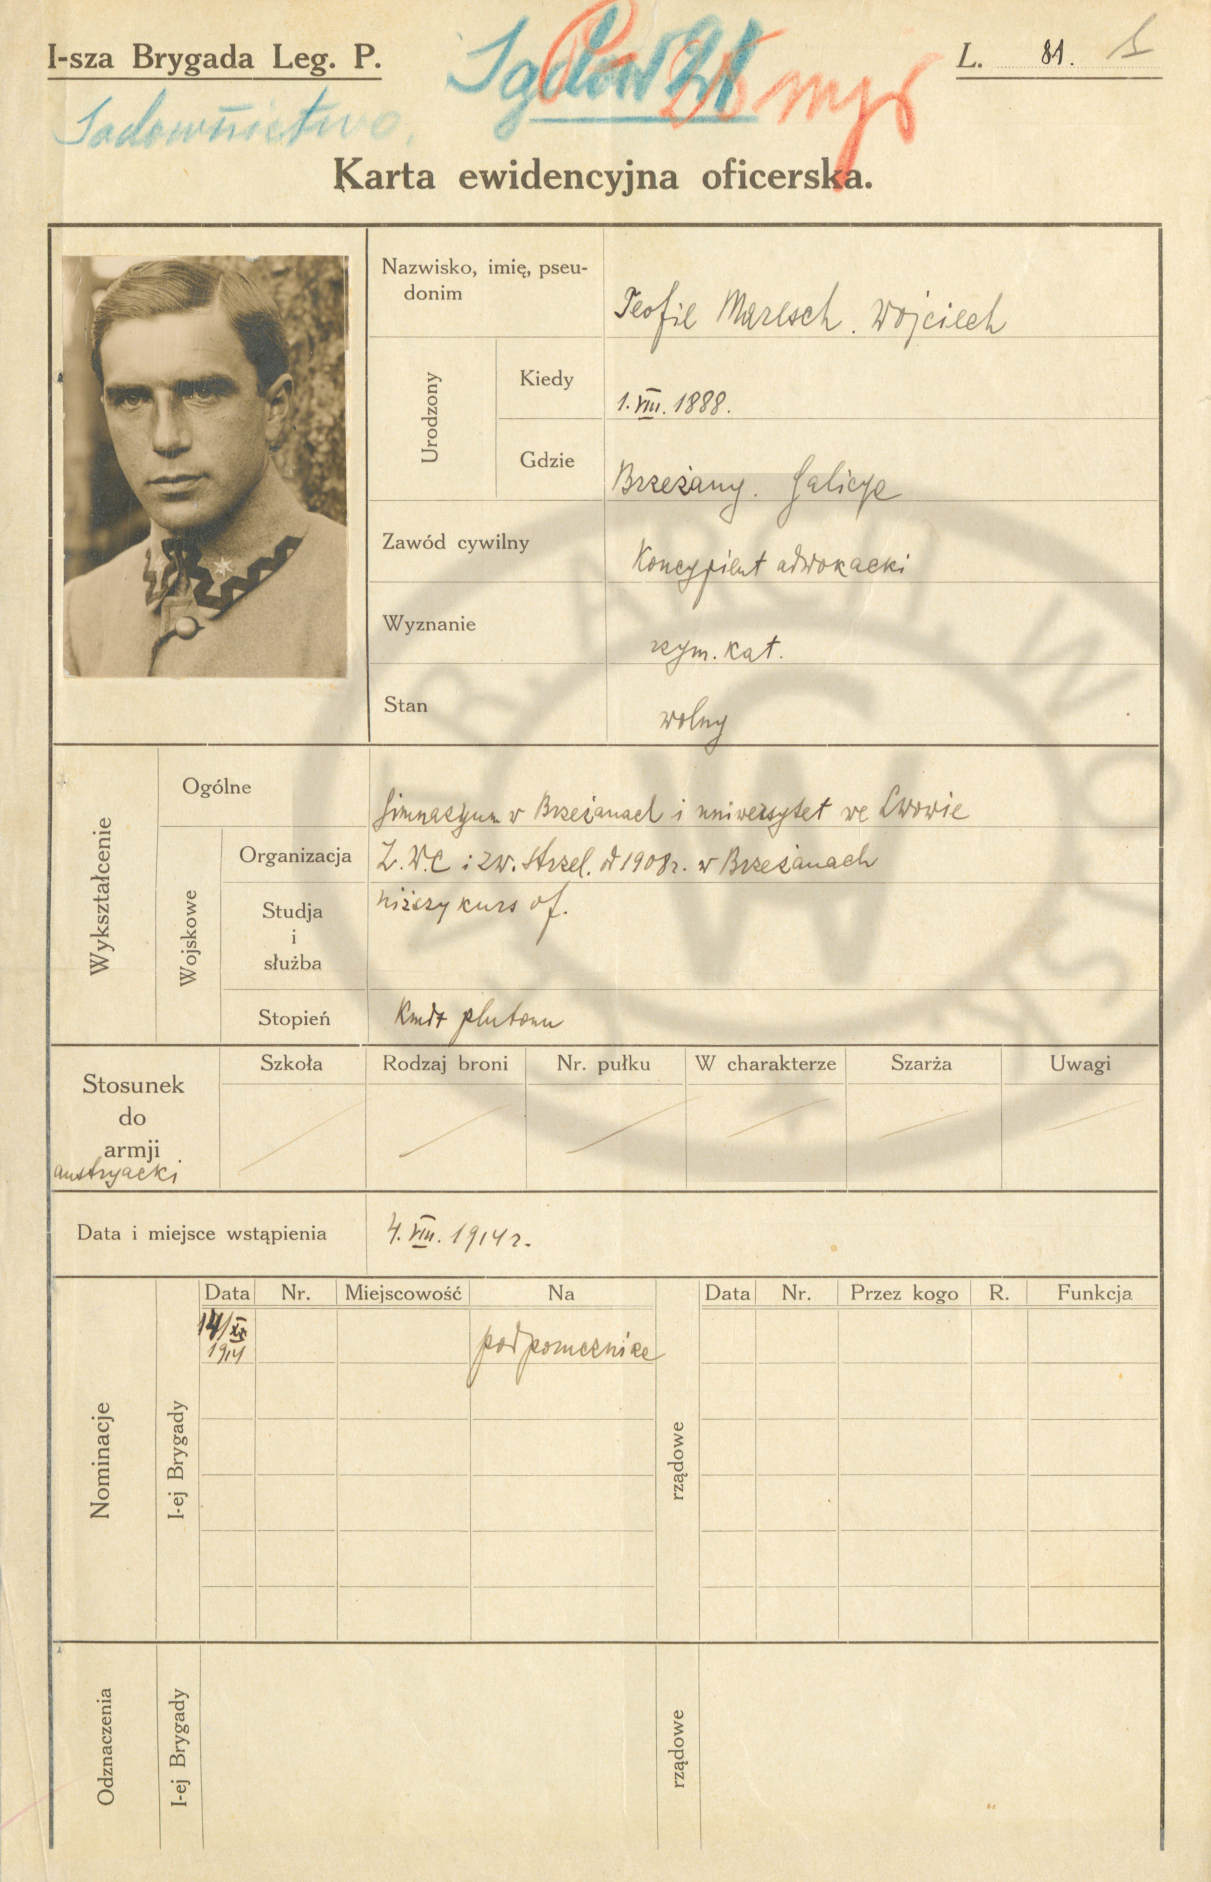 I-sza Brygada Leg. P.
L. 81. 1
Sądow 21
mjr
Sadownictwo.
Karta ewidencyjna oficerska.
Nazwisko, imię, pseu-
donim
Teofil Maresch. Wojciech
Urodzony
Kiedy
1. VIII. 1888.
Gdzie
Brzeżany. Galicya
Zawód cywilny
Koncypient adwokacki
Wyznanie
rzym. kat.
Stan
wolny
Wykształcenie
Ogólne
Gimnazyum w Brzeżanach i uniwersytet we Lwowie
Wojskowe
Organizacja
Z.W.C i zw. Strzel. od 1908 r. w Brzeżanach
Studja
i
służba
niższy kurs of.
Stopień
Kmdt plutonu
Stosunek
do
armji
austryacki
Szkoła
Rodzaj broni
Nr. pułku
W charakterze
Szarża
Uwagi
Data i miejsce wstąpienia
4. VIII. 1914 r.
Nominacje
I-ej Brygady
Data
Nr.
Miejscowość
Na
rządowe
Data
Nr.
Przez kogo
R.
Funkcja
1914
podporucznika
Odznaczenia
I-ej Brygady
rządowe
CAW